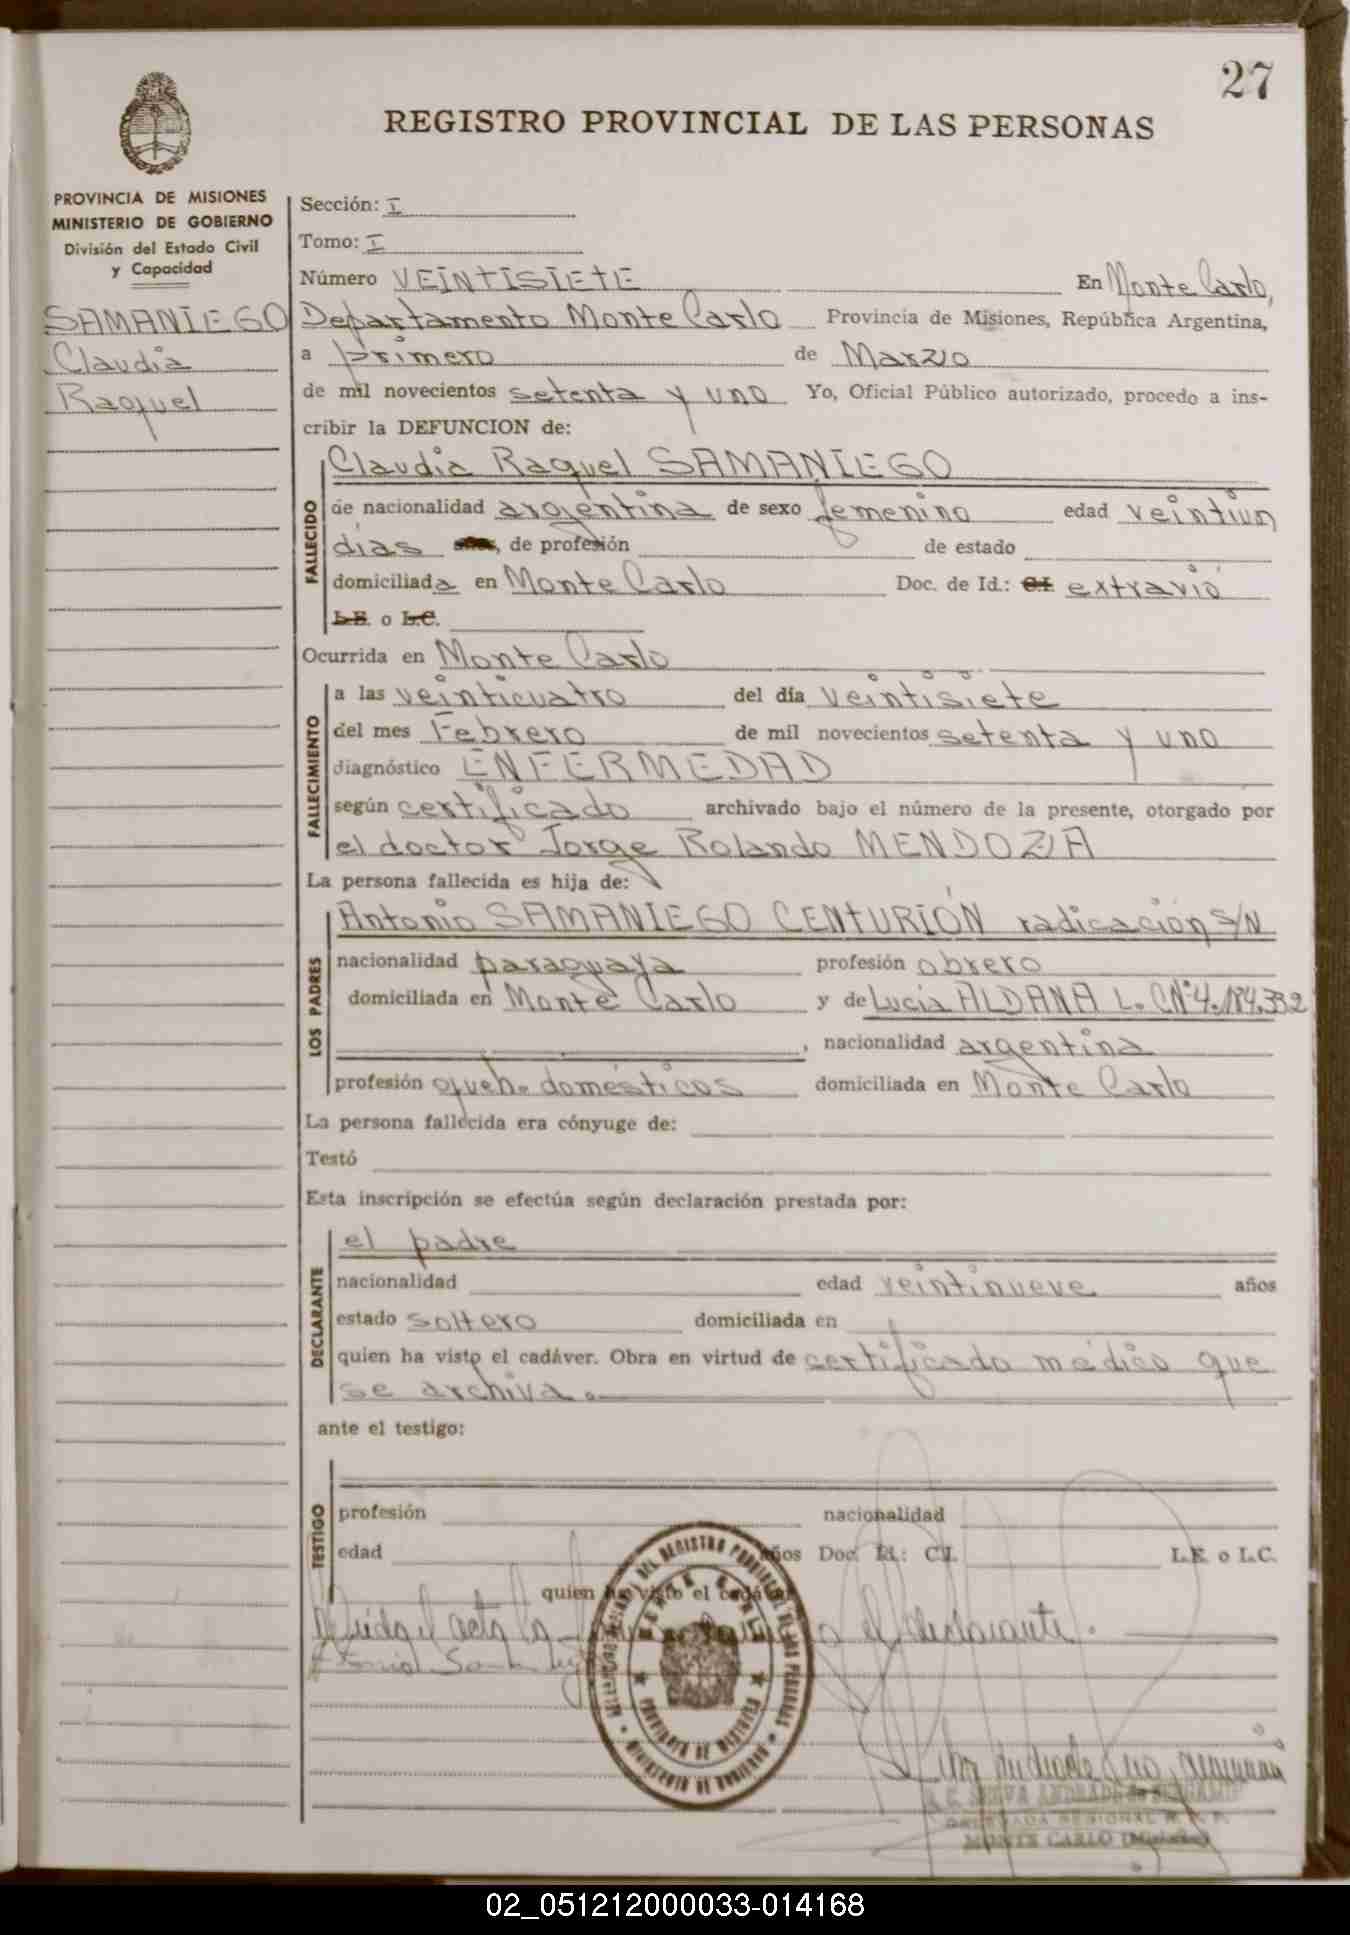 27
REGISTRO PROVINCIAL DE LAS PERSONAS
PROVINCIA DE MISIONES
MINISTERIO DE GOBIERNO
División del Estado Civil
y Capacidad
SAMANIEGO
Claudia
Raquel
Sección: I
Tomo: I
Número VEINTISIETE En Monte Carlo,
Departamento Monte Carlo Provincia de Misiones, República Argentina,
a primero de Marzo
de mil novecientos setenta y uno Yo, Oficial Público autorizado, procedo a ins-
cribir la DEFUNCION de:
FALLECIDO
Claudia Raquel SAMANIEGO
de nacionalidad argentina de sexo femenino edad veintiun
días, de profesión de estado
domiciliada en Monte Carlo Doc. de Id.: C.I. extravió
L.E. o L.C.
Ocurrida en Monte Carlo
FALLECIMIENTO
a las veinticuatro del día veintisiete
del mes Febrero de mil novecientos setenta y uno
diagnóstico ENFERMEDAD
según certificado archivado bajo el número de la presente, otorgado por
el doctor Jorge Rolando MENDOZA
La persona fallecida es hija de:
LOS PADRES
Antonio SAMANIEGO CENTURIÓN radicación S/N
nacionalidad paraguaya profesión obrero
domiciliada en Monte Carlo y de Lucia ALDANA L. C Nº 4.184.332
, nacionalidad argentina
profesión queh. domésticos domiciliada en Monte Carlo
La persona fallecida era cónyuge de:
Testó
Esta inscripción se efectúa según declaración prestada por:
DECLARANTE
el padre
nacionalidad edad veintinueve años
estado soltero domiciliada en
quien ha visto el cadáver. Obra en virtud de certificado médico que
se archiva.
ante el testigo:
TESTIGO
profesión nacionalidad
edad años Doc. Id.: C.I. L.E. o L.C.
quien ha visto el cadáver
Leída el acta la el declarante.
DEL REGISTRO PROVINCIAL DE LAS PERSONAS
PROVINCIA DE MISIONES
MINISTERIO DE GOBIERNO
MONTE CARLO (Misiones)
02_051212000033-014168